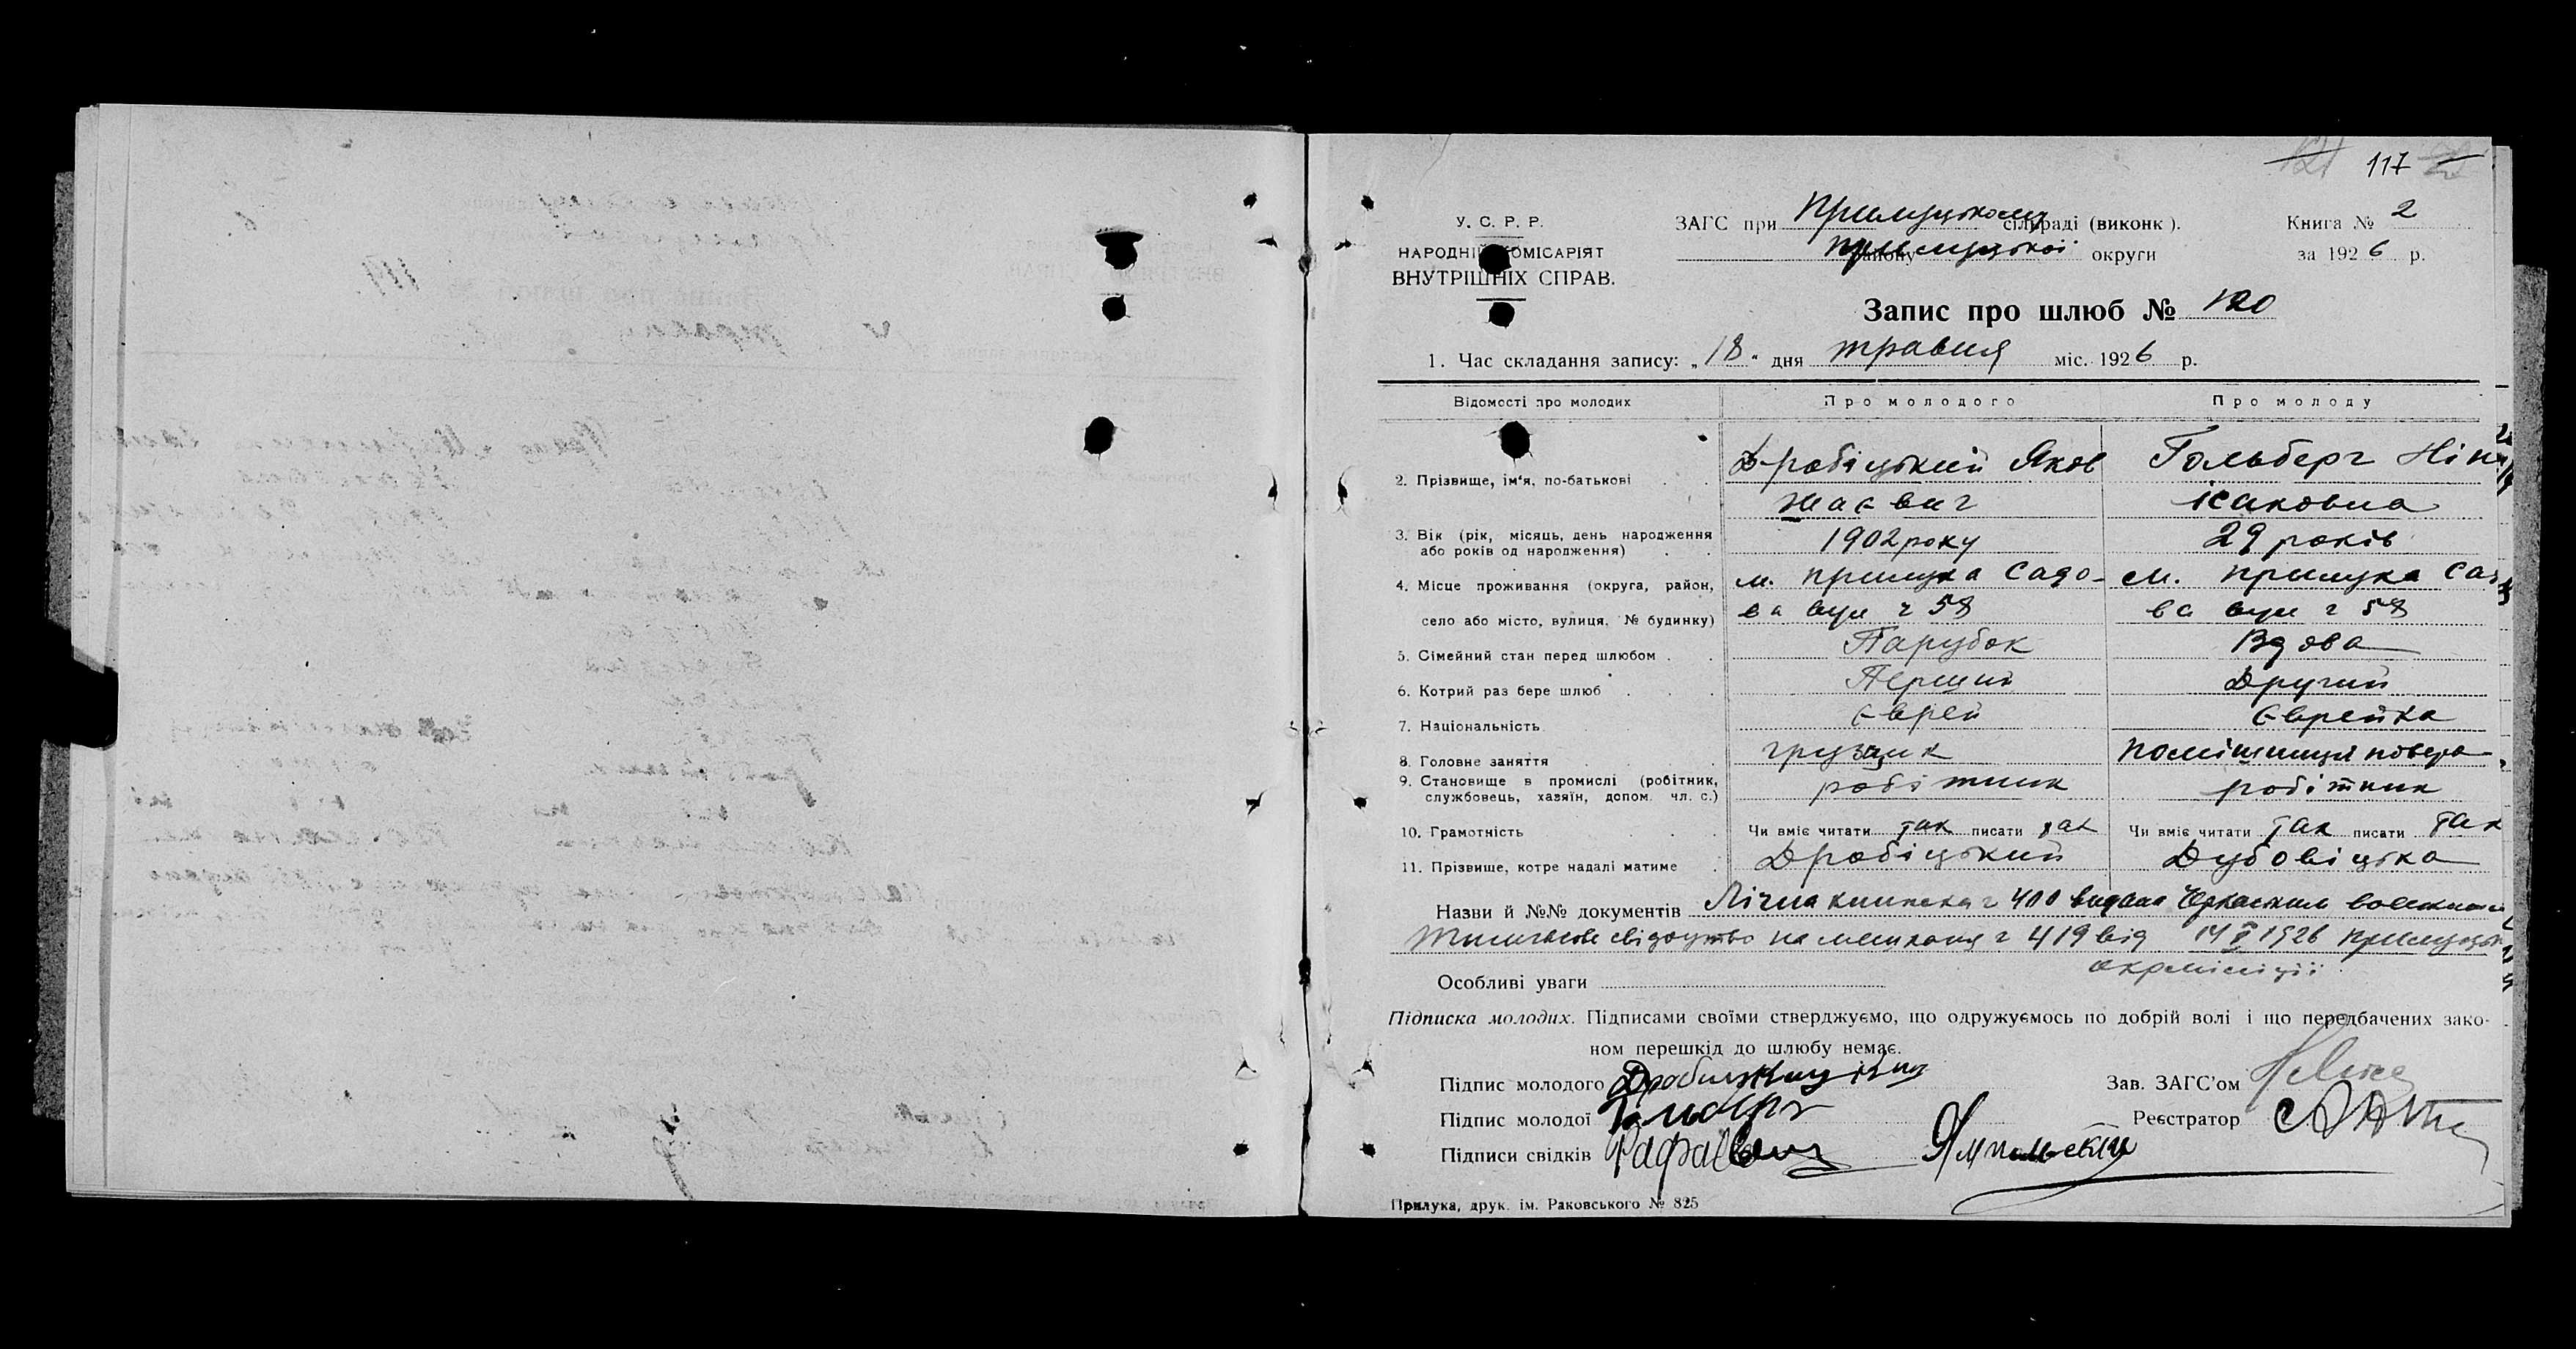 117
У. С. Р. Р.
НАРОДНІЙ КОМІСАРІЯТ
ВНУТРІШНІХ СПРАВ.
ЗАГС при Прилуцькому сільраді (виконк).
району Прилуцької округи
Книга № 2
за 1926 р.
Запис про шлюб № 120
1. Час складання запису: „18" дня травня міс. 1926 р.
Відомості про молодих Про молодого Про молоду
2. Прізвище, ім'я, по-батькові Дробіцький Яков Гольберг Ніна
ісаковна
3. Вік (рік, місяць, день народження
або років од народження) 1902 року 29 років
4. Місце проживання (округа, район, м. Прилука Садо- м. Прилука Садо
село або місто, вулиця, № будинку) ва вул ч 58 ва вул ч 58
5. Сімейний стан перед шлюбом Парубок Вдова
6. Котрий раз бере шлюб Перший Другий
7. Національність Єврей Єврейка
8. Головне заняття грузчик
9. Становище в промислі (робітник,
службовець, хазяїн, допом. чл. с.) робітник робітник
10. Грамотність Чи вміє читати так писати так Чи вміє читати так писати так
11. Прізвище, котре надалі матиме Дробіцький Дубовіцька
Назви й №№ документів Лічна книжка ч 400 видана
свідоцтво на мешкання ч 419 від 14 V 1926 Прилуцької
окрміліції
Особливі уваги
Підписка молодих. Підписами своїми стверджуємо, що одружуємось по добрій волі і що передбачених зако-
ном перешкід до шлюбу немає.
Підпис молодого
Зав. ЗАГС'ом
Підпис молодої Гольберг
Реєстратор
Підписи свідків Ямпольский
Прилука, друк. ім. Раковського № 825